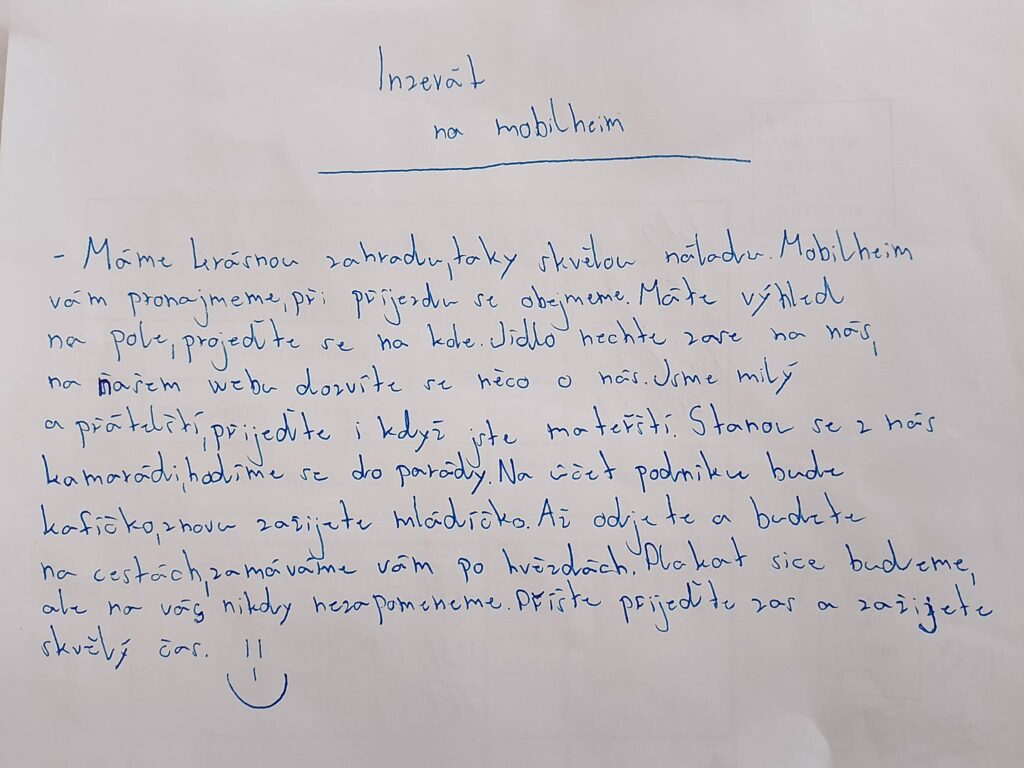 Inzerát
na mobilheim
- Máme krásnou zahradu, taky skvělou náladu. Mobilheim
vám pronajmeme, při příjezdu se obejmeme. Máte výhled
na pole, projeďte se na kole. Jídlo nechte zase na nás,
na našem webu dozvíte se něco o nás. Jsme milý
a přátelští, přijeďte i když jste mateřští. Stanou se z nás
kamarádi, hodíme se do parády. Na účet podniku bude
kafíčko, znovu zažijete mládíčko. Až odjete a budete
na cestách, zamáváme vám po hvězdách. Plakat sice budeme,
ale na vás nikdy nezapomeneme. Příště přijeďte zas a zažijete
skvělý čas.